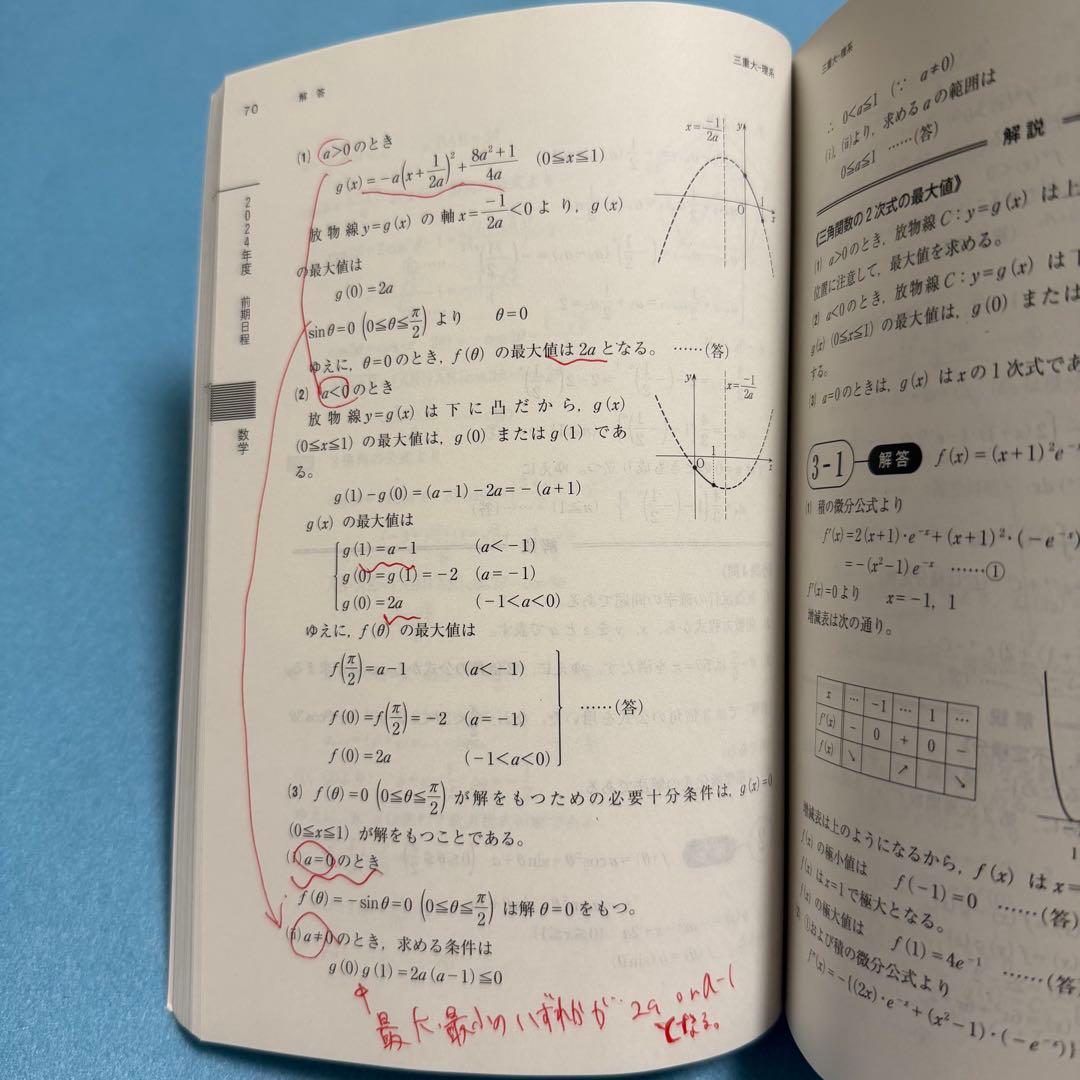 70 解答
三重大-理系
2024年度 前期日程
数学
(1) a>0のとき
g(x)=-a(x+1/2a)²+(8a²+1)/4a (0≦x≦1)
放物線y=g(x)の軸x=-1/2a<0より，g(x)
の最大値は
g(0)=2a
sinθ=0 (0≦θ≦π/2) より θ=0
ゆえに，θ=0のとき，f(θ)の最大値は2aとなる。……(答)
x=-1/2a
y
O
1
x
(2) a<0のとき
放物線y=g(x)は下に凸だから，g(x)
(0≦x≦1)の最大値は，g(0)またはg(1)であ
る。
g(1)-g(0)=(a-1)-2a=-(a+1)
y
x=-1/2a
O
1
x
g(x)の最大値は
g(1)=a-1 (a<-1)
g(0)=g(1)=-2 (a=-1)
g(0)=2a (-1<a<0)
ゆえに，f(θ)の最大値は
f(π/2)=a-1 (a<-1)
f(0)=f(π/2)=-2 (a=-1) ……(答)
f(0)=2a (-1<a<0)
(3) f(θ)=0 (0≦θ≦π/2) が解をもつための必要十分条件は，g(x)=0
(0≦x≦1)が解をもつことである。
(i) a=0のとき
f(θ)=-sinθ=0 (0≦θ≦π/2) は解θ=0をもつ。
(ii) a≠0のとき，求める条件は
g(0)g(1)=2a(a-1)≦0
最大、最小のいずれかが 2a or a-1
となる。
三重大-理系
∴ 0<a≦1 (∵ a≠0)
(i), (ii)より，求めるaの範囲は
0≦a≦1 ……(答)
解説
《三角関数の2次式の最大値》
(1) a>0のとき，放物線C：y=g(x)は上
位置に注意して，最大値を求める。
(2) a<0のとき，放物線C：y=g(x)は下
g(x) (0≦x≦1)の最大値は，g(0)または
する。
(3) a=0のときは，g(x)はxの1次式であ
3-1 解答 f(x)=(x+1)²e⁻
(1) 積の微分公式より
f′(x)=2(x+1)・e⁻ˣ+(x+1)²・(-e⁻ˣ
=-(x²-1)e⁻ˣ ……①
f′(x)=0より x=-1, 1
増減表は次の通り。
x … -1 … 1 …
f′(x) - 0 + 0 -
f(x) ↘ ↗ ↘
1
増減表は上のようになるから，f(x)はx=
f(x)の極小値は f(-1)=0 ……(答)
f(x)はx=1で極大となる。
f(x)の極大値は f(1)=4e⁻¹ ……(答)
①および積の微分公式より
f″(x)=-{(2x)・e⁻ˣ+(x²-1)・(-e⁻ˣ)}